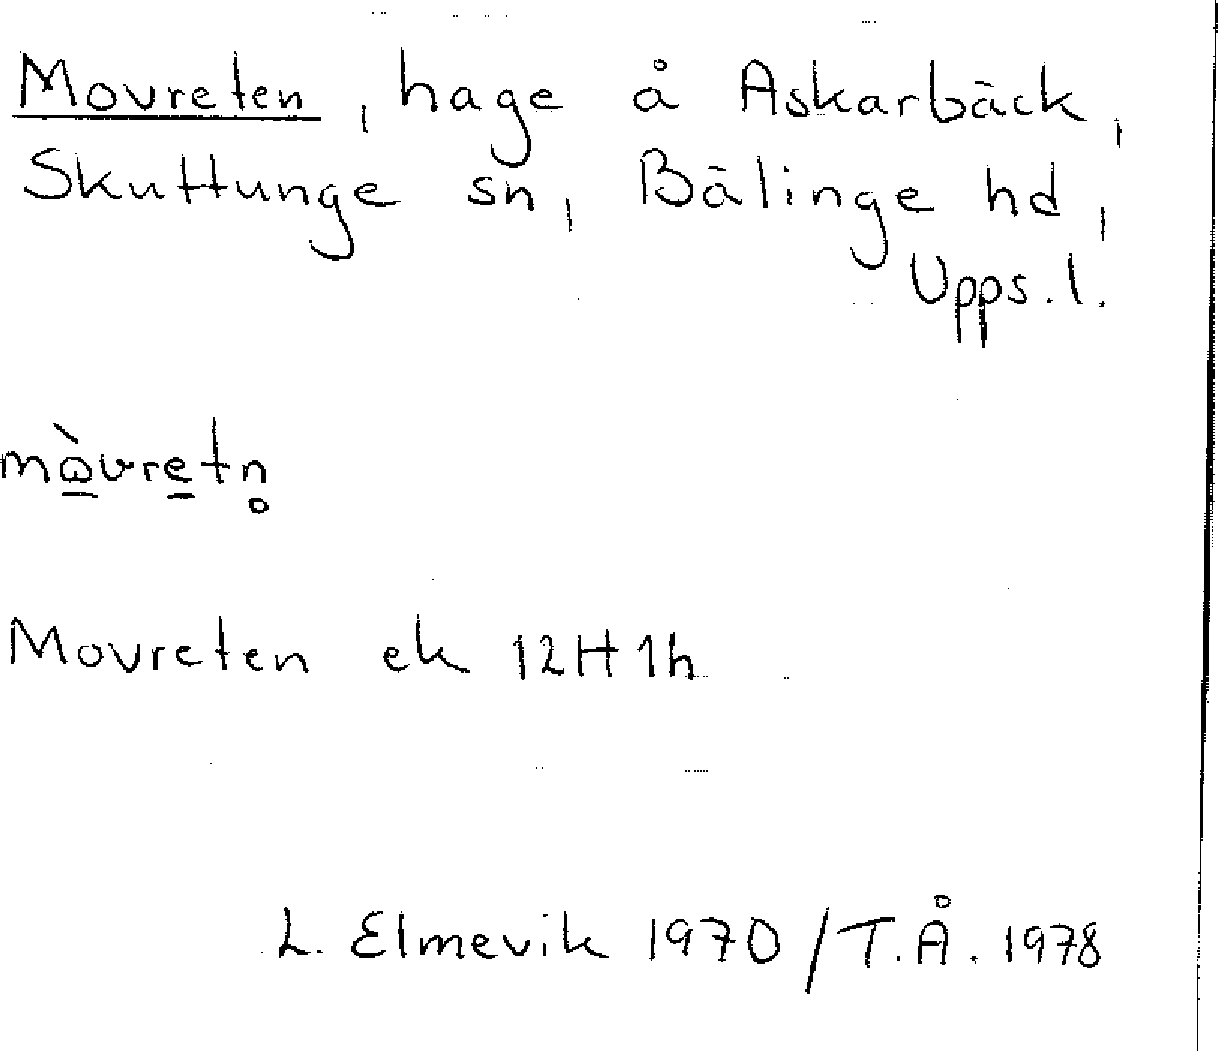 Movreten, hage å Askarbäck,
Skuttunge sn, Bälinge hd,
Upps. l.
mòvretn̥
Movreten ek 12H 1h
L. Elmevik 1970 / T.Å. 1978